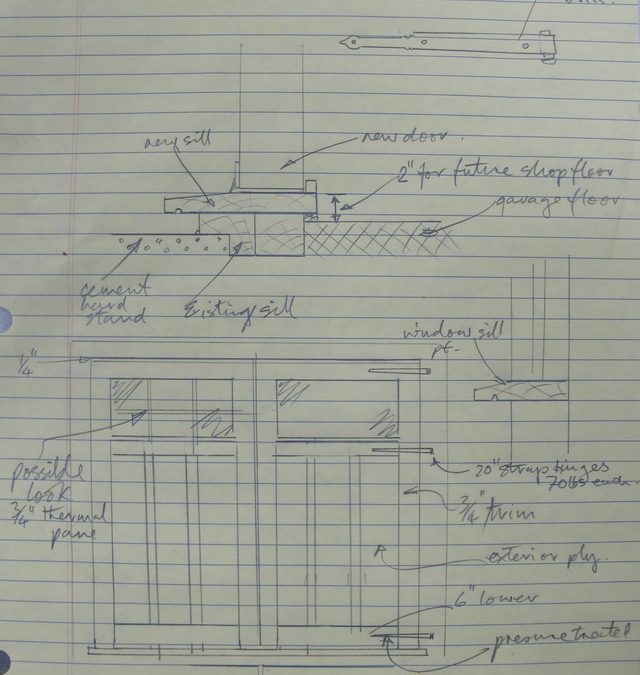 new sill
new door.
2" for future shop floor
garage floor
cement
hard
stand
Existing sill
window sill
pt.
1/4"
possible
look
3/4" thermal
pane
20" strap hinges
70lbs each.
3/4" trim
exterior ply.
6" lower
presure treated